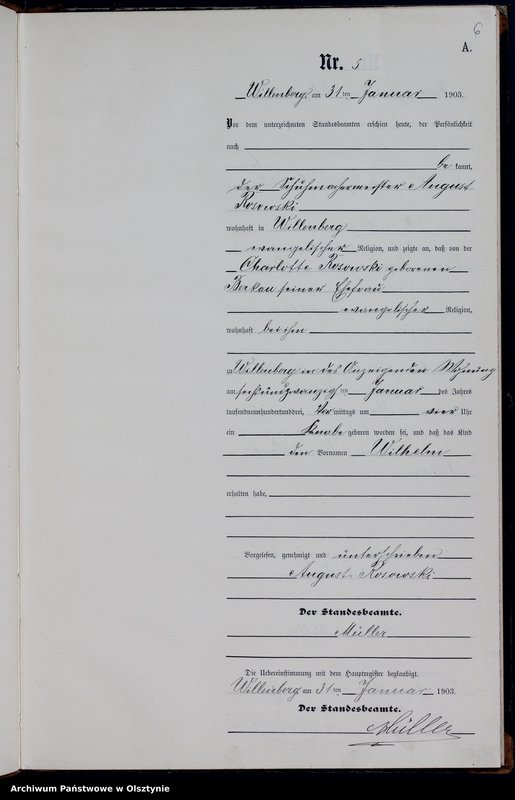 6
A.
Nr. 5
Willenberg, am 31 ten Januar 1903.
Vor dem unterzeichneten Standesbeamten erschien heute, der Persönlichkeit
nach
be kannt,
der Schuhmachermeister August
Rosowski
wohnhaft in Willenberg
evangelischer Religion, und zeigte an, daß von der
Charlotte Rosowski geborenen
Berkau seiner Ehefrau
evangelischer Religion,
wohnhaft bei ihm
zu Willenberg in des Anzeigenden Wohnung
am sechsundzwanzig ten Januar des Jahres
tausendneunhundertunddrei, Vor mittags um vier Uhr
ein Knabe geboren worden sei, und daß das Kind
den Vornamen Wilhelm
erhalten habe,
Vorgelesen, genehmigt und unterschrieben
August Rosowski
Der Standesbeamte.
Müller
Die Uebereinstimmung mit dem Hauptregister beglaubigt.
Willenberg am 31 ten Januar 1903.
Der Standesbeamte.
Müller
Archiwum Państwowe w Olsztynie